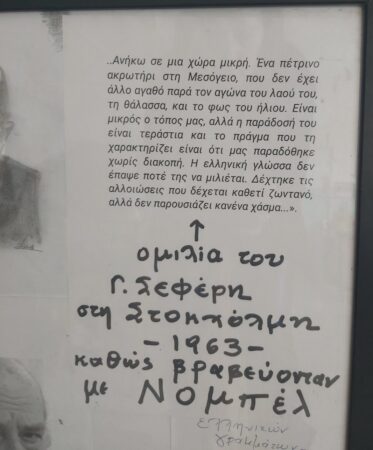 ..Ανήκω σε μια χώρα μικρή. Ένα πέτρινο
ακρωτήρι στη Μεσόγειο, που δεν έχει
άλλο αγαθό παρά τον αγώνα του λαού του,
τη θάλασσα, και το φως του ήλιου. Είναι
μικρός ο τόπος μας, αλλά η παράδοσή του
είναι τεράστια και το πράγμα που τη
χαρακτηρίζει είναι ότι μας παραδόθηκε
χωρίς διακοπή. Η ελληνική γλώσσα δεν
έπαψε ποτέ της να μιλιέται. Δέχτηκε τις
αλλοιώσεις που δέχεται καθετί ζωντανό,
αλλά δεν παρουσιάζει κανένα χάσμα...».
ομιλία του
Γ. Σεφέρη
στη Στοκχόλμη
- 1963 -
καθώς βραβεύονταν
με ΝΟΜΠΕΛ
ελληνικών
γραμμάτων